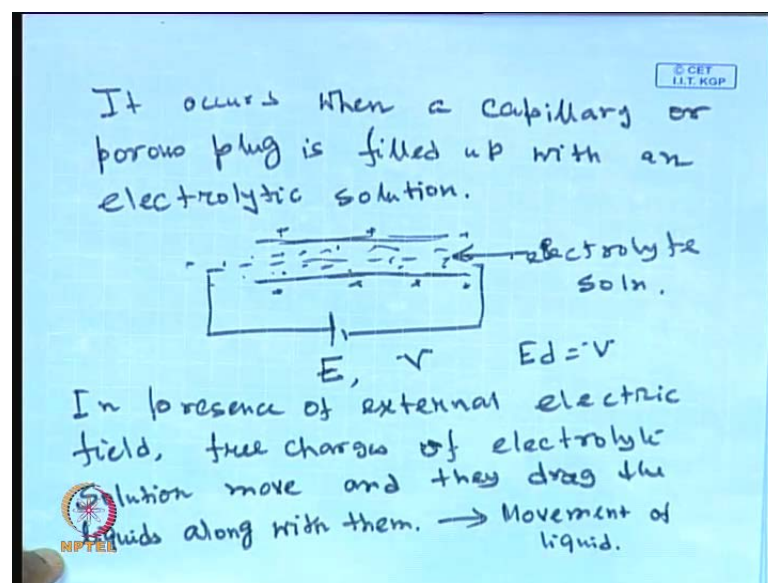 © CET
I.I.T. KGP
It occurs when a capillary or
porous plug is filled up with an
electrolytic solution.
electrolyte
soln.
E, V Ed = V
In presence of external electric
field, free charges of electrolyte
solution move and they drag the
liquids along with them. → Movement of
liquid.
NPTEL